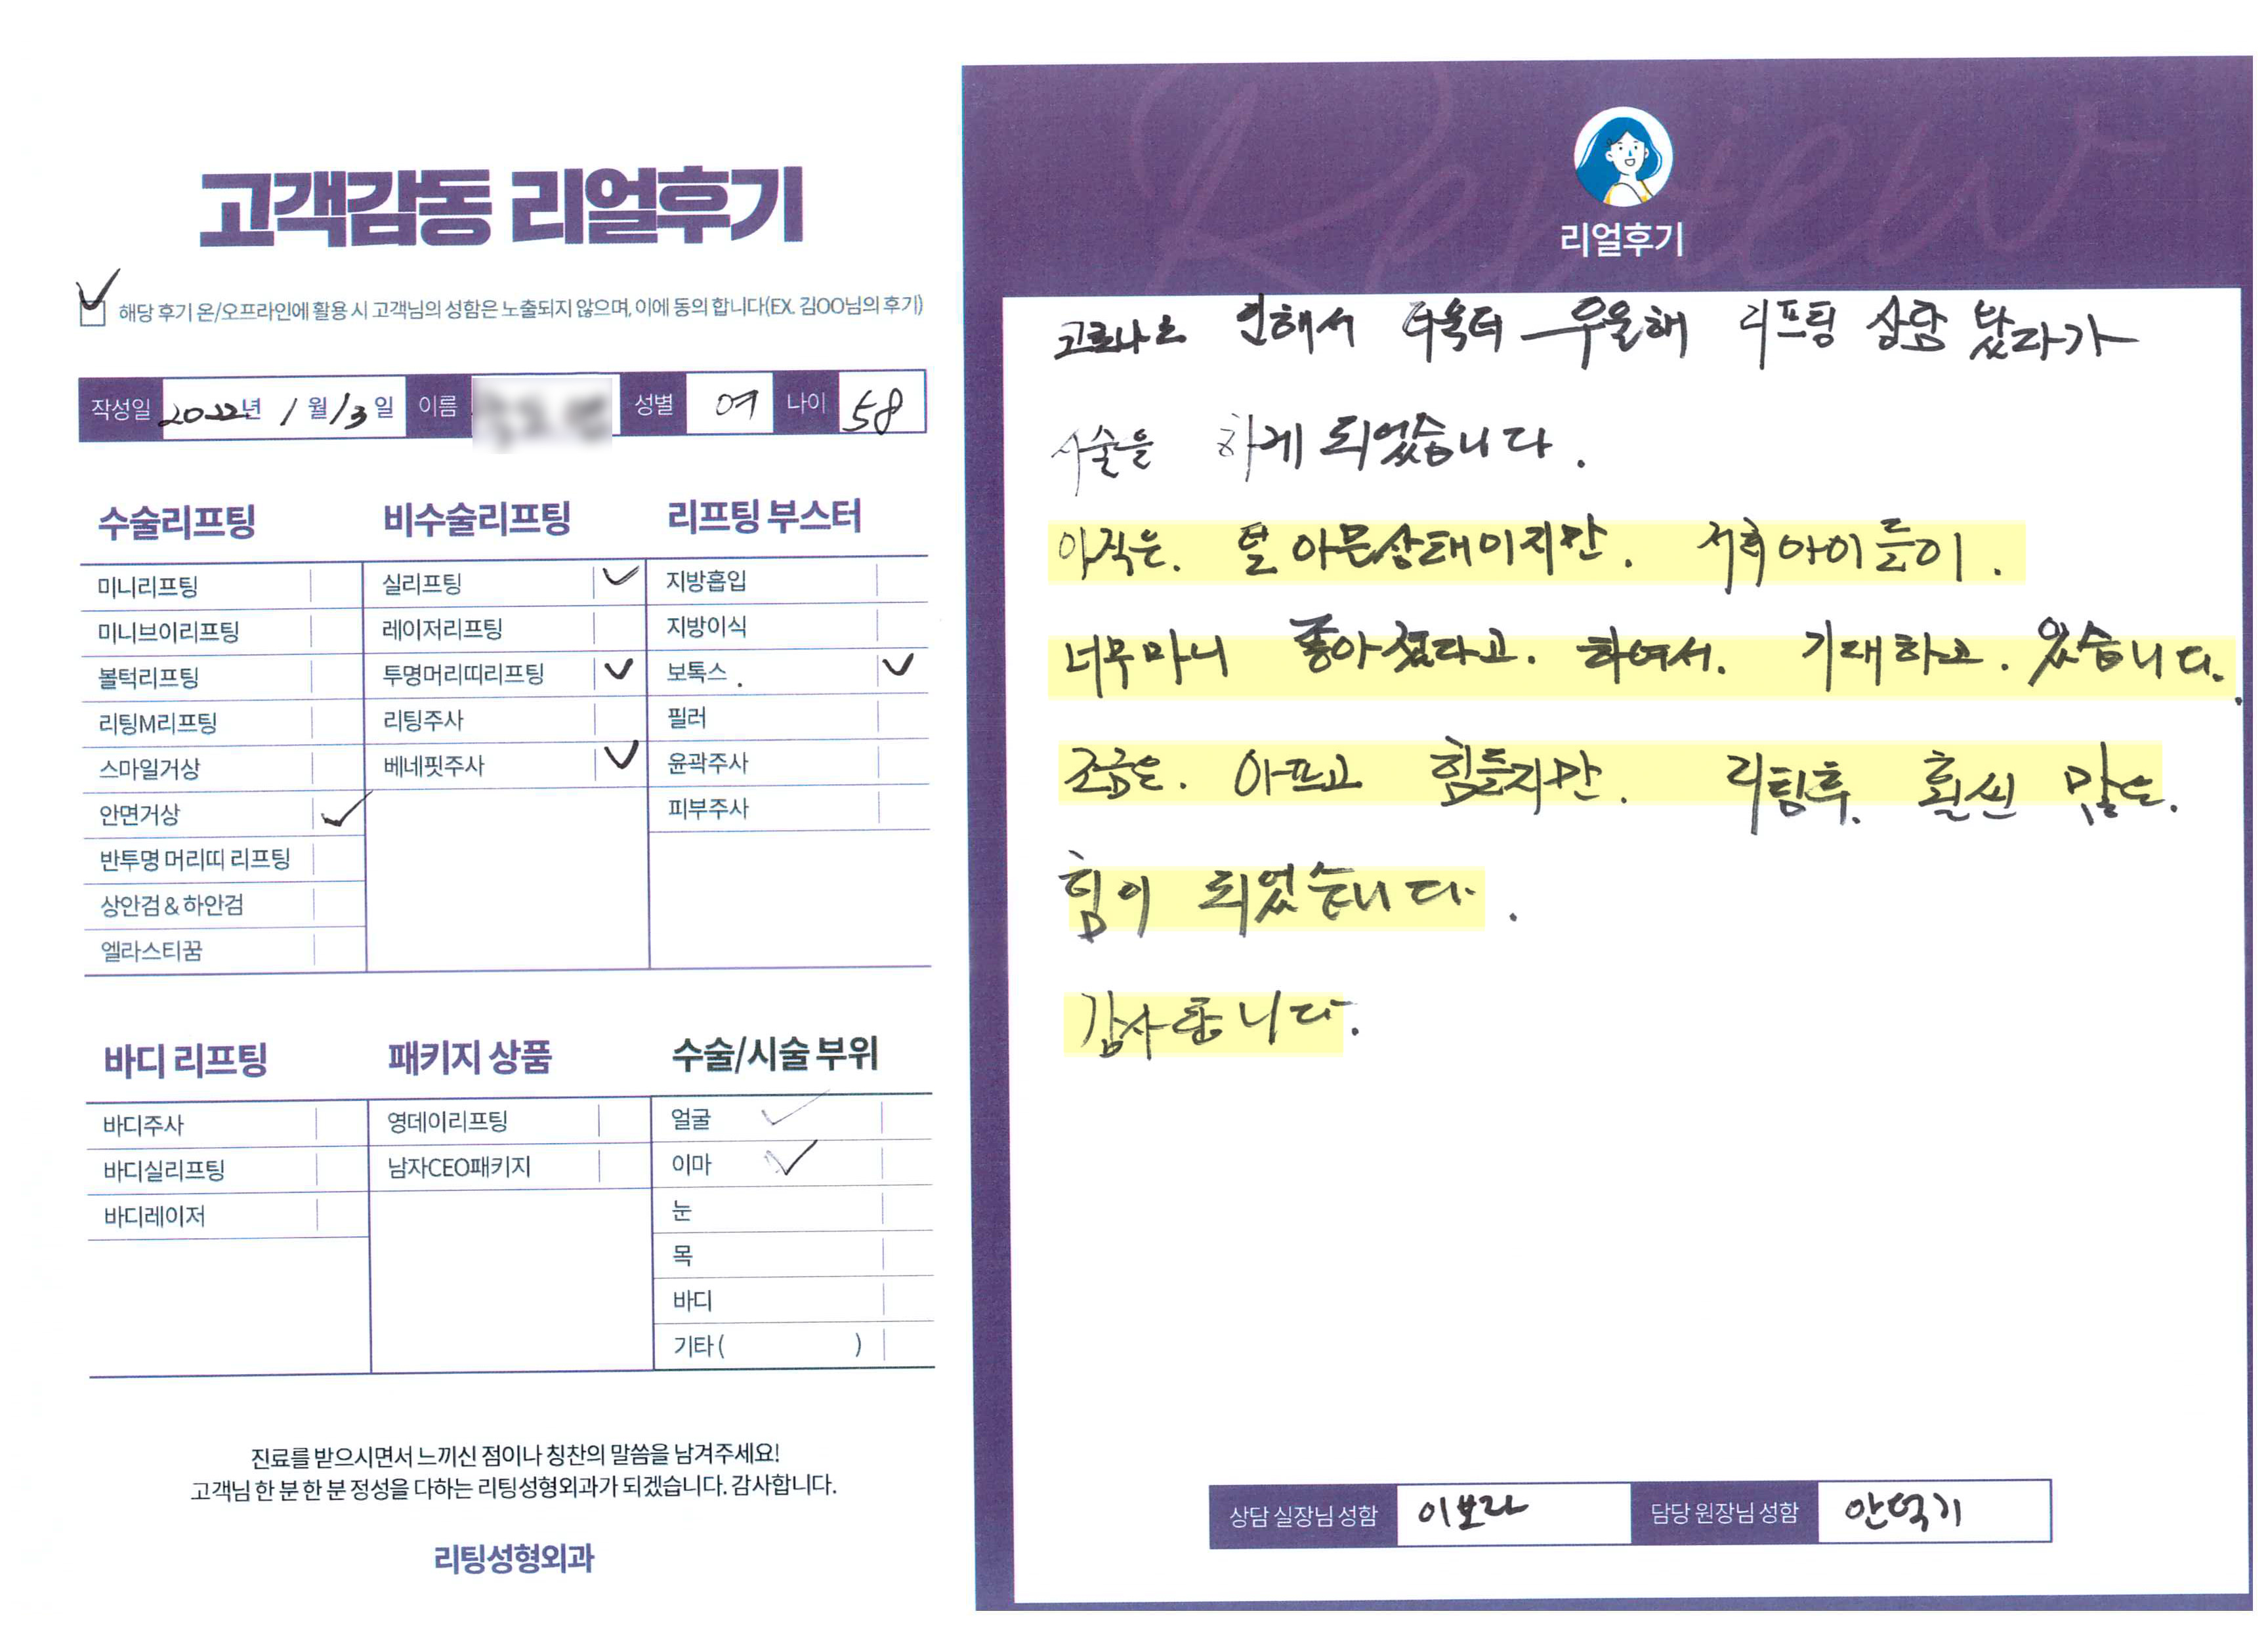 고객감동 리얼후기
해당 후기 온/오프라인에 활용 시 고객님의 성함은 노출되지 않으며, 이에 동의 합니다(EX. 김OO님의 후기)
작성일 2022년 1월 13일 이름 성별 여 나이 58
수술리프팅 비수술리프팅 리프팅 부스터
미니리프팅 실리프팅 지방흡입
미니브이리프팅 레이저리프팅 지방이식
볼턱리프팅 투명머리띠리프팅 보톡스
리팅M리프팅 리팅주사 필러
스마일거상 베네핏주사 윤곽주사
안면거상 피부주사
반투명 머리띠 리프팅
상안검 & 하안검
엘라스티꿈
바디 리프팅 패키지 상품 수술/시술 부위
바디주사 영데이리프팅 얼굴
바디실리프팅 남자CEO패키지 이마
바디레이저 눈
목
바디
기타 ( )
진료를 받으시면서 느끼신 점이나 칭찬의 말씀을 남겨주세요!
고객님 한 분 한 분 정성을 다하는 리팅성형외과가 되겠습니다. 감사합니다.
리팅성형외과
Review
리얼후기
코로나로 인해서 더욱더 우울해 리프팅 상담 봤다가
시술을 하게 되었습니다.
아직은. 덜 아문상태이지만. 저희아이들이.
너무마니 좋아졌다고. 하여서. 기대하고. 있습니다.
조금은. 아프고 힘들지만. 리팅후. 훨씬 많은.
힘이 되었습니다.
감사합니다.
상담 실장님 성함 이보라 담당 원장님 성함 안덕기